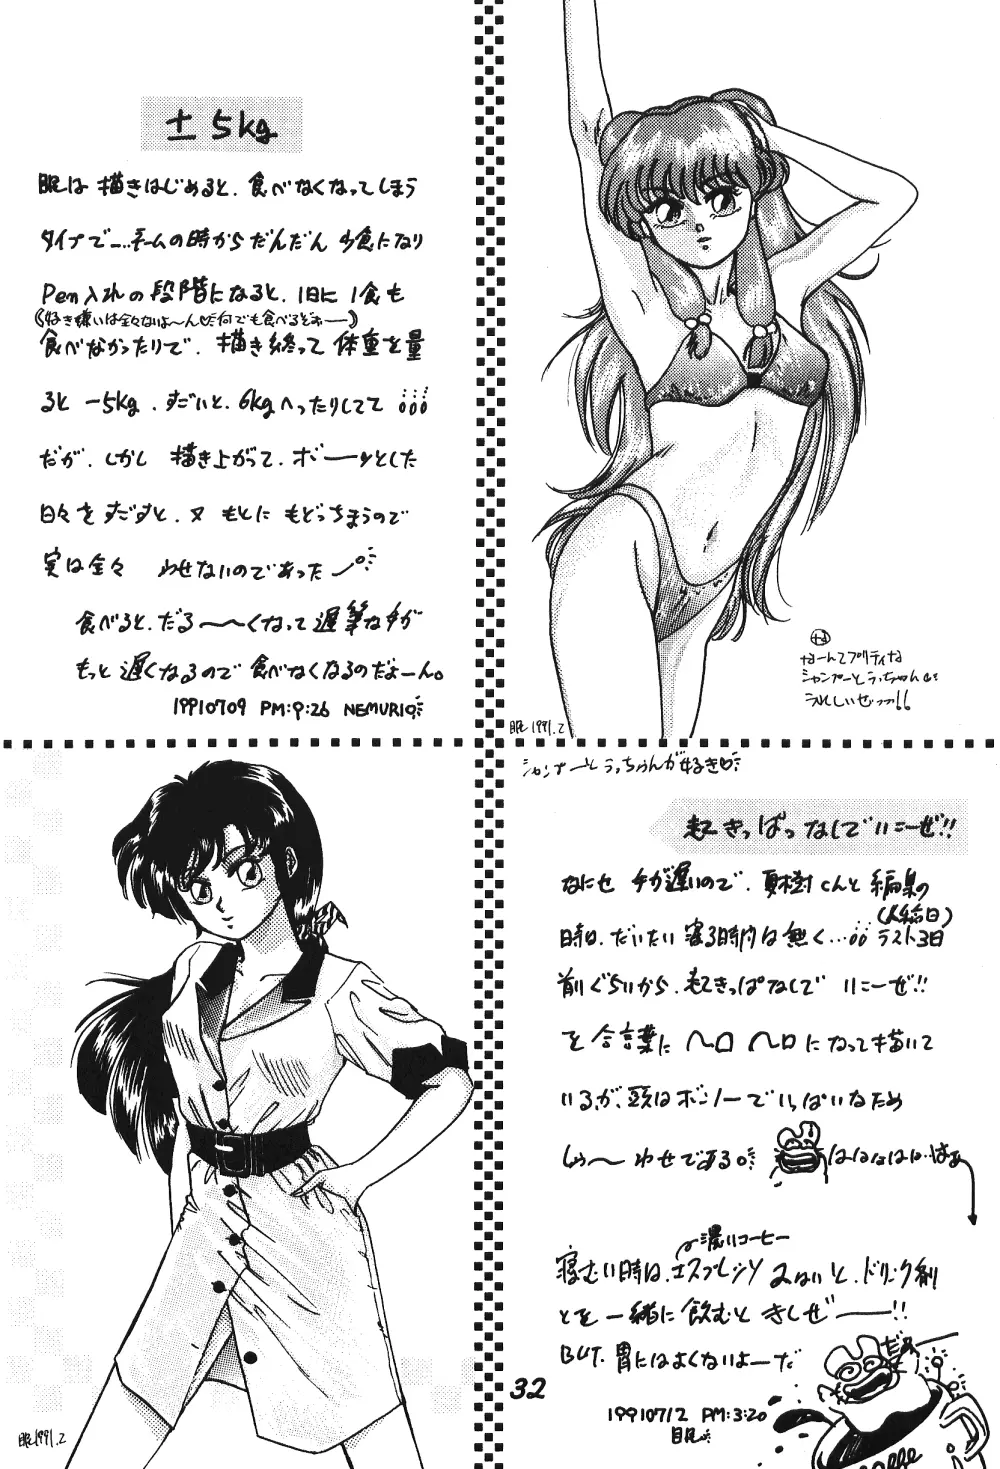 ±5kg
眠は描きはじめると、食べなくなってしまう
タイプで…ネームの時からだんだん少食になり
Pen入れの段階になると、1日に1食も
(好き嫌いは全々ないよ〜ん♡何でも食べるどぉー)
食べなかったりで、描き終って体重を量
ると−5kg、すごいと、6kgへったりしてて
だが、しかし 描き上がって、ボーッとした
日々をすごすと、又もとにもどっちまうので
実は全々 やせないのであった
食べると、だる〜〜くなって遅筆な手が
もっと遅くなるので食べなくなるのだよーん。
19910709 PM:9:26 NEMURI
なーんてプリティな
シャンプーとうっちゃん
うれしいぜっっ!!
眠1991.2
シャンプーとうっちゃんが好き♡
起きっぱっなしでいこーぜ!!
なにせ 手が遅いので、夏樹くんと編集の
(〆切日)
時は、だいたい寝る時間は無く…ラスト3日
前ぐらいから、起きっぱなしでいこーぜ!!
を合言葉にヘロヘロになって描いて
いるが、頭はボンノーでいっぱいなため
しゅ〜わせである。
ははははは…はぁ
濃いコーヒー
寝むい時は、エスプレッソ みないと、ドリンク剤
とを一緒に飲むと きしぜ——!!
BUT、胃にはよくないよーだ
19910712 PM:3:20
眠
32
眠1991.2